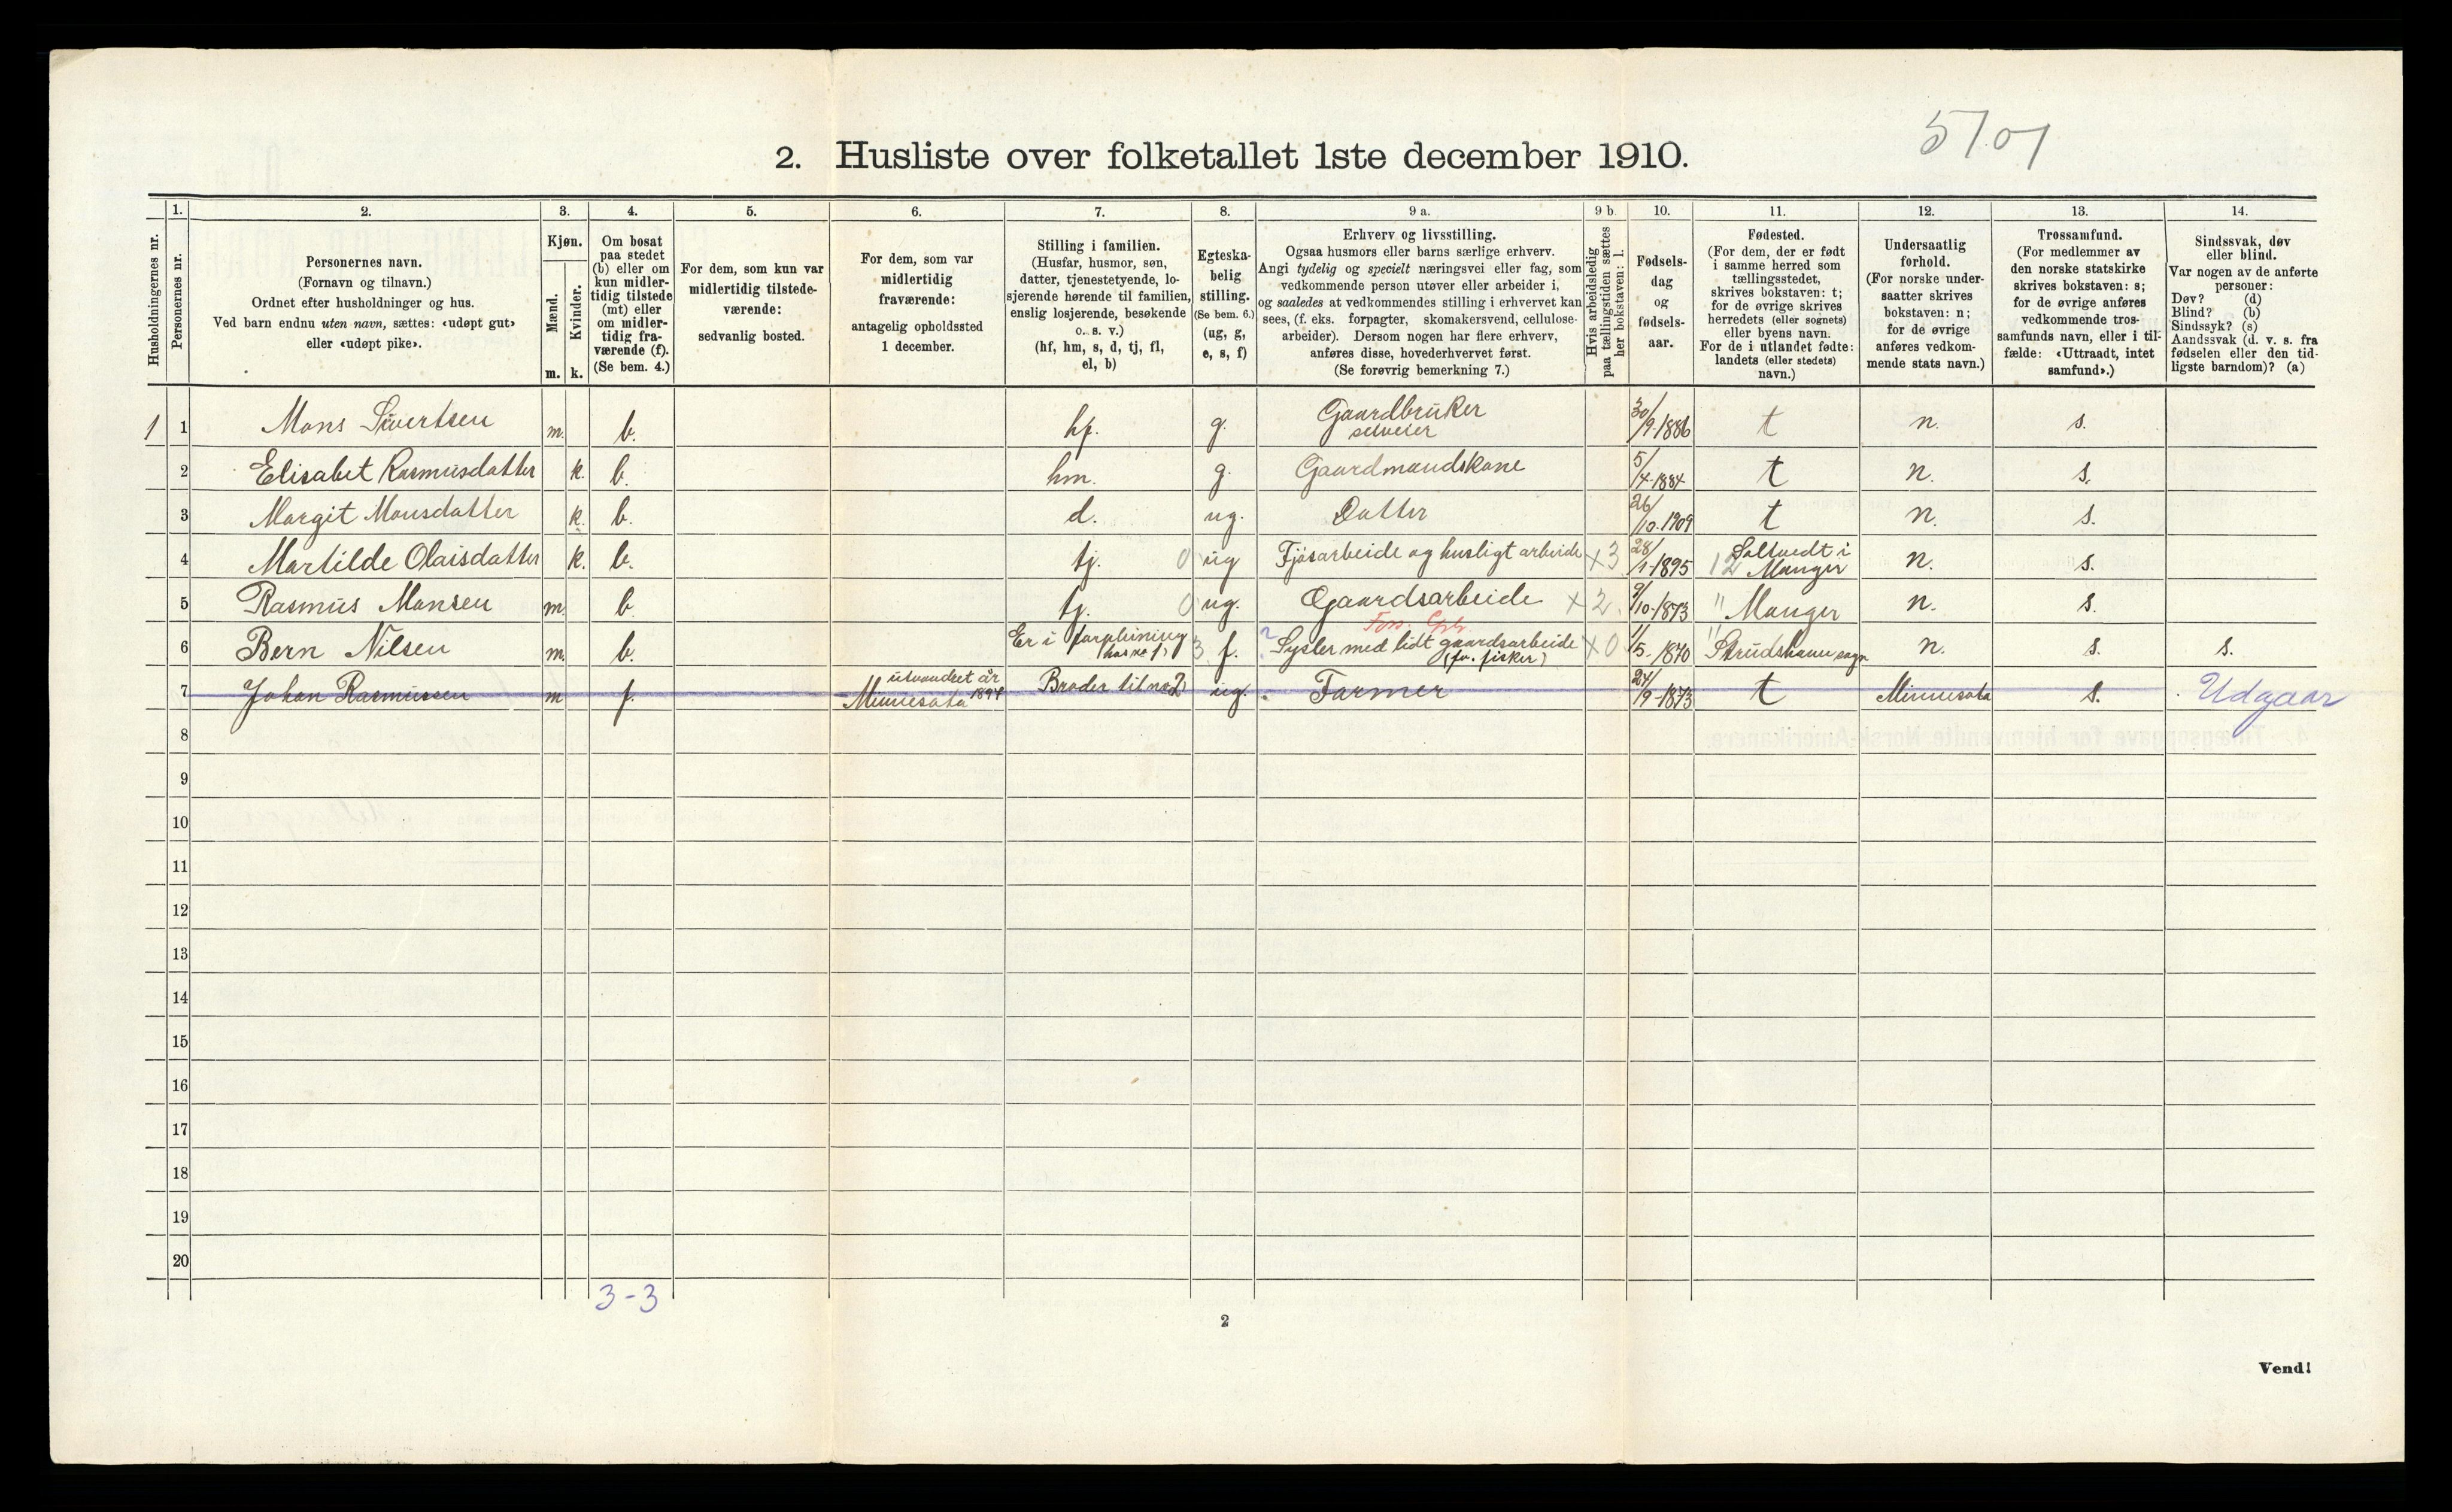 57.07
2. Husliste over folketallet 1ste december 1910.
Husholdningernes nr.
1.
Personernes nr.
2.
Personernes navn.
(Fornavn og tilnavn.)
Ordnet efter husholdninger og hus.
Ved barn endnu uten navn, sættes: «udøpt gut»
eller «udøpt pike».
3.
Kjøn.
Mænd.
Kvinder.
m. k.
4.
Om bosat
paa stedet
(b) eller om
kun midler-
tidig tilstede
(mt) eller
om midler-
tidig fra-
værende (f).
(Se bem. 4.)
5.
For dem, som kun var
midlertidig tilstede-
værende:
sedvanlig bosted.
6.
For dem, som var
midlertidig
fraværende:
antagelig opholdssted
1 december.
7.
Stilling i familien.
(Husfar, husmor, søn,
datter, tjenestetyende, lo-
sjerende hørende til familien,
enslig losjerende, besøkende
o. s. v.)
(hf, hm, s, d, tj, fl,
el, b)
8.
Egteska-
belig
stilling.
(Se bem. 6.)
(ug, g,
e, s, f)
9 a.
Erhverv og livsstilling.
Ogsaa husmors eller barns særlige erhverv.
Angi tydelig og specielt næringsvei eller fag, som
vedkommende person utøver eller arbeider i,
og saaledes at vedkommendes stilling i erhvervet kan
sees, (f. eks. forpagter, skomakersvend, cellulose-
arbeider). Dersom nogen har flere erhverv,
anføres disse, hovederhvervet først.
(Se forøvrig bemerkning 7.)
9 b
Hvis arbeidsledig
paa tællingstiden sættes
her bokstaven: l.
10.
Fødsels-
dag
og
fødsels-
aar.
11.
Fødested.
(For dem, der er født
i samme herred som
tællingsstedet,
skrives bokstaven: t;
for de øvrige skrives
herredets (eller sognets)
eller byens navn.
For de i utlandet fødte:
landets (eller stedets)
navn.)
12.
Undersaatlig
forhold.
(For norske under-
saatter skrives
bokstaven: n;
for de øvrige
anføres vedkom-
mende stats navn.)
13.
Trossamfund.
(For medlemmer av
den norske statskirke
skrives bokstaven: s;
for de øvrige anføres
vedkommende tros-
samfunds navn, eller i til-
fælde: «Uttraadt, intet
samfund».)
14.
Sindssvak, døv
eller blind.
Var nogen av de anførte
personer:
Døv? (d)
Blind? (b)
Sindssyk? (s)
Aandssvak (d. v. s. fra
fødselen eller den tid-
ligste barndom)? (a)
1 1 Mons Sivertsen m. b. hf. g. Gaardbruker selveier 30/9-1886 t n. s.
2 Elisabet Rasmusdatter k. b. hm. g. Gaardmandskone 5/4-1884 t n. s.
3 Margit Monsdatter k. b. d. ug. Datter 26/10-1909 t n. s.
4 Martilde Olaisdatter k. b. tj. 0 ug Fjøsarbeide og husligt arbeide x3 28/1-1895 12 Soltvedt i Manger n. s.
5 Rasmus Monsen m. b. tj. 0 ug. Gaardsarbeide x2. 9/10-1873 " Manger n. s.
6 Bern Nilsen m. b. Er i forpleining hos no 1) 3 f. ? Sysler med lidt gaardsarbeide (fv. fisker) x0 1/5-1870 " Strudshavn sogn n. s. s.
7 Johan Rasmussen m f. utvandret år 1894 Minnesota Broder til no 2) ug. Farmer 24/9-1873 t Minnesota s. Udgaar
8
9
10
11
12
13
14
15
16
17
18
19
20
3-3
2
Vend!